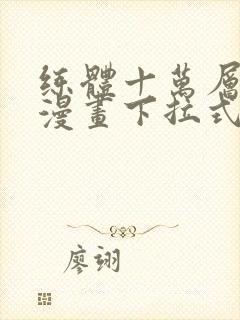 練體十萬層
漫畫下拉式
廖翊